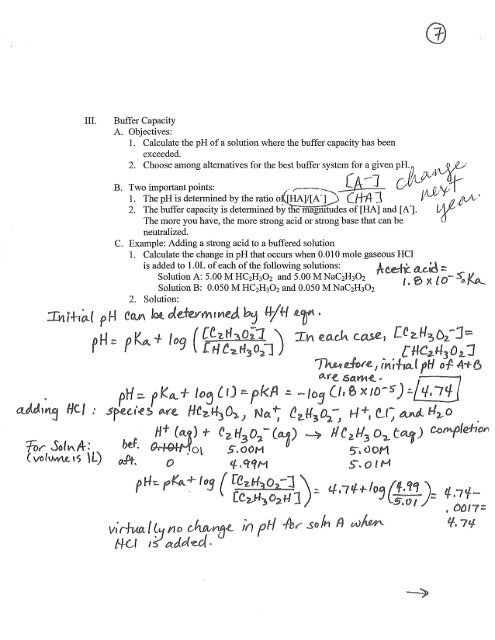 7
III. Buffer Capacity
A. Objectives:
1. Calculate the pH of a solution where the buffer capacity has been
exceeded.
2. Choose among alternatives for the best buffer system for a given pH.
B. Two important points:
1. The pH is determined by the ratio of [HA]/[A⁻]
[A⁻]
[HA]
change
next
year.
2. The buffer capacity is determined by the magnitudes of [HA] and [A⁻].
The more you have, the more strong acid or strong base that can be
neutralized.
C. Example: Adding a strong acid to a buffered solution
1. Calculate the change in pH that occurs when 0.010 mole gaseous HCl
is added to 1.0L of each of the following solutions:
Solution A: 5.00 M HC₂H₃O₂ and 5.00 M NaC₂H₃O₂
Solution B: 0.050 M HC₂H₃O₂ and 0.050 M NaC₂H₃O₂
Acetic acid =
1.8 x 10⁻⁵ = Ka
2. Solution:
Initial pH can be determined by H/H eqn.
pH = pKa + log ([C₂H₃O₂⁻]/[HC₂H₃O₂])
In each case, [C₂H₃O₂⁻] =
[HC₂H₃O₂]
Therefore, initial pH of A+B
are same.
pH = pKa + log(1) = pKA = -log(1.8 x 10⁻⁵) = 4.74
adding HCl : species are HC₂H₃O₂, Na⁺, C₂H₃O₂⁻, H⁺, Cl⁻, and H₂O
H⁺(aq) + C₂H₃O₂⁻(aq) → HC₂H₃O₂(aq) completion
For Soln A: bef. .01 5.00M 5.00M
(volume is 1L) aft. 0 4.99M 5.01M
pH = pKa + log ([C₂H₃O₂⁻]/[C₂H₃O₂H]) = 4.74 + log (4.99/5.01) = 4.74 -
.0017 =
4.74
virtually no change in pH for soln A when
HCl is added.
→